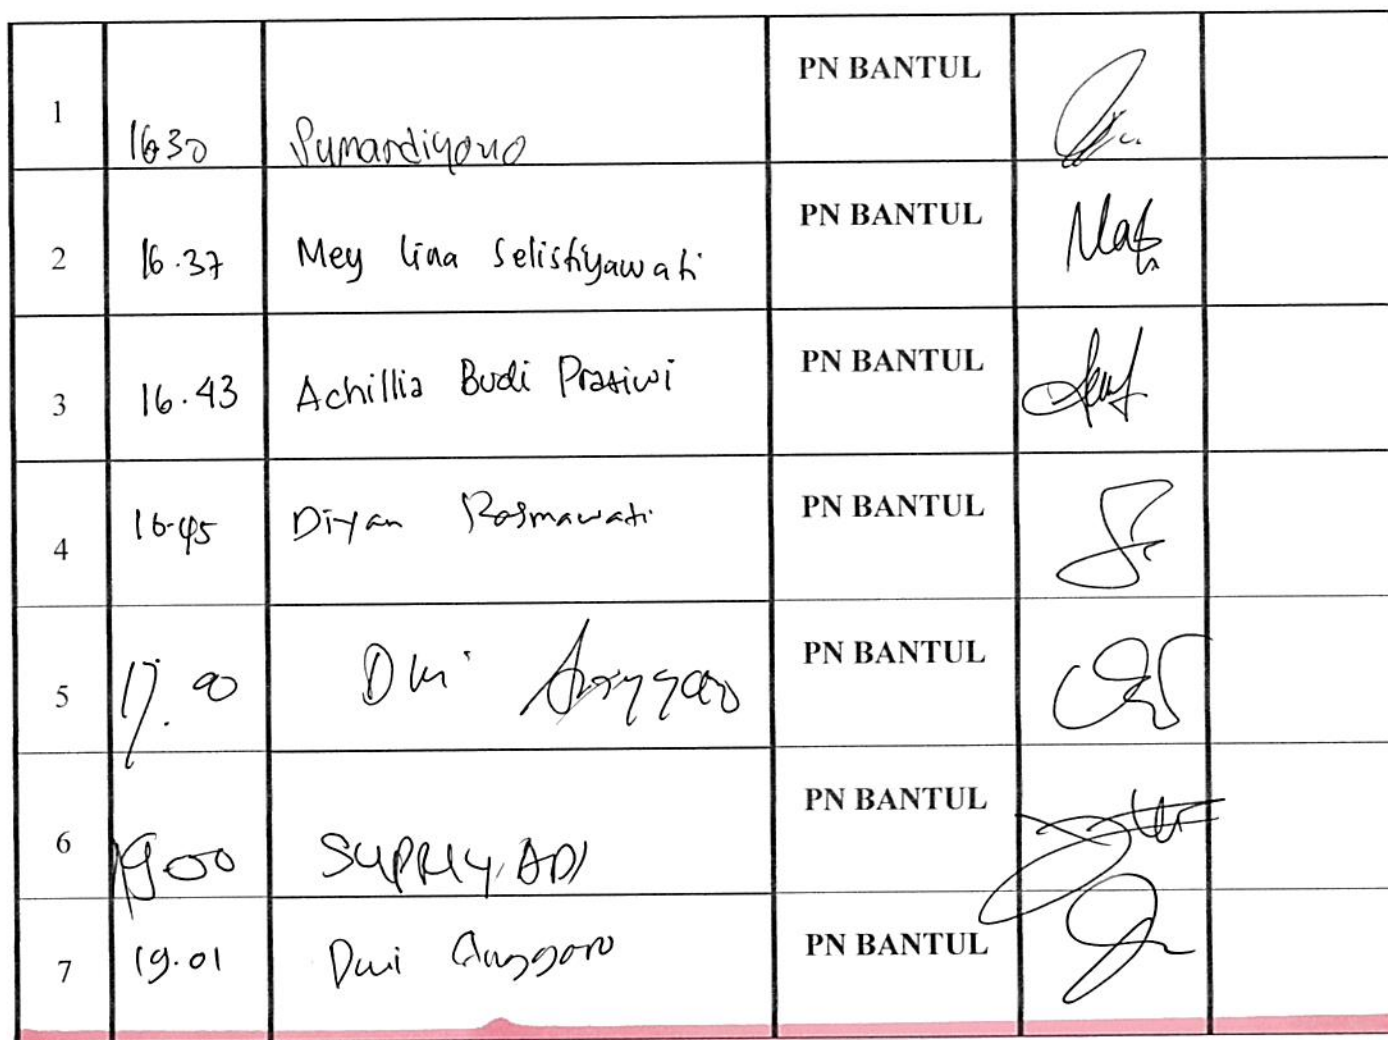 1 1630 Sumardiyono PN BANTUL
2 16.37 Mey Lina Selistiyawati PN BANTUL
3 16.43 Achillia Budi Prasiwi PN BANTUL
4 16.45 Diyan Rosmawati PN BANTUL
5 17.00 Dwi Anggoro PN BANTUL
6 1900 SUPRIYADI PN BANTUL
7 19.01 Dwi Anggoro PN BANTUL